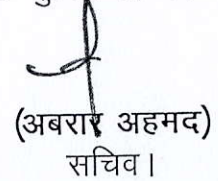 (अबरार अहमद)
सचिव।